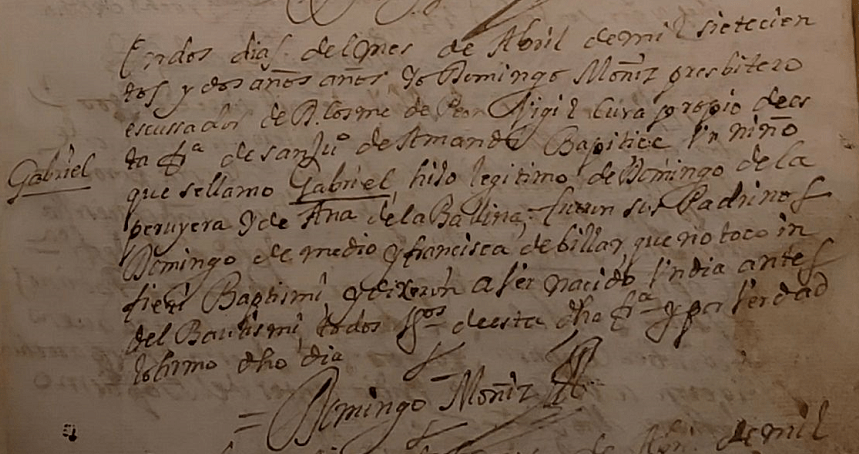 En dos dias del mes de Abril de mil sietecien
tos y dos años años Yo Domingo Moñiz presbitero
escussador de D. Cosme de Peon Vigil Cura propio dees
ta fª de san Juº de Amandi Baptice Vn niño
Gabriel
que se llamo Gabriel, hijo legitimo de Domingo de la
peruyera y de Ana de la Ballina; fueron sus Padrinos
Domingo de medio y francisca de billar, que no toco in
fieri Baptismi, y dixeron aser nacido Vn dia antes
del Bautismi, todos Vºs deesta dha fª y por Verdad
lo firmo dho dia
= Domingo Moñiz
de Abri de mil